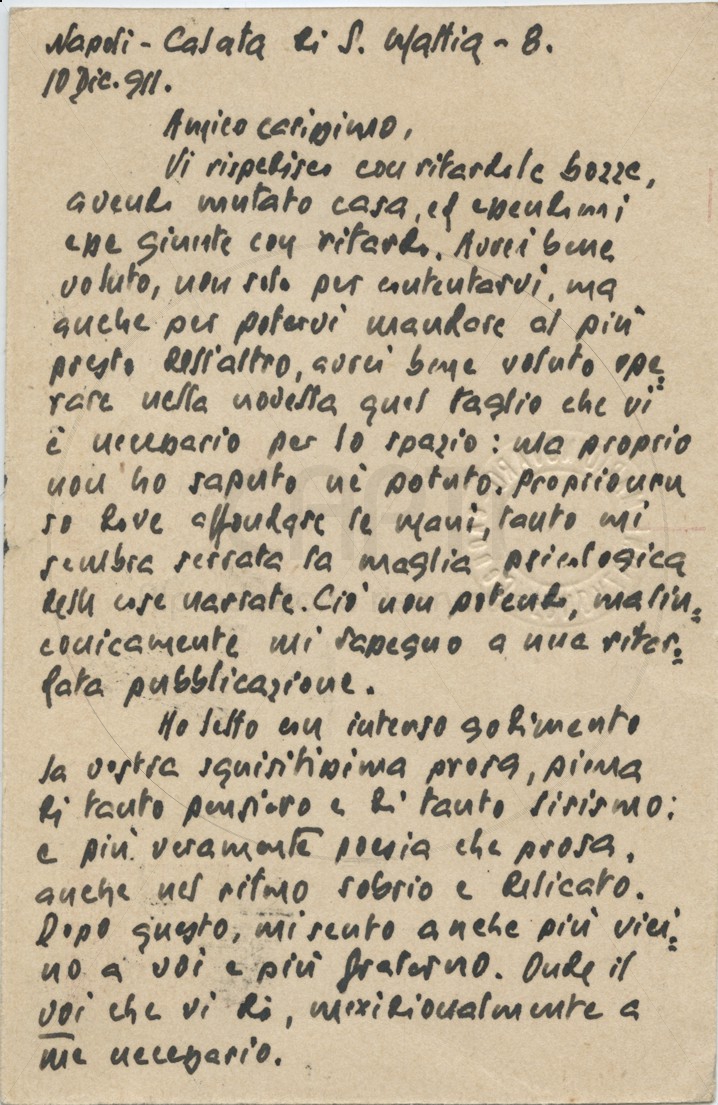 Napoli - Calata di S. Mattia - 8.
10 Dic. 911.
Amico carissimo,
Vi rispedisco con ritardo le bozze,
avendo mutato casa, ed essendomi
esse giunte con ritardo. Avrei bene
voluto, non solo per contentarvi, ma
anche per potervi mandare al più
presto dell'altro, avrei bene voluto ope=
rare nella novella quel taglio che vi
è necessario per lo spazio: ma proprio
non ho saputo nè potuto. Proprio non
so dove affondare le mani, tanto mi
sembra serrata la maglia psicologica
delle cose narrate. Ciò non potendo, malin=
conicamente mi rassegno a una ritar=
data pubblicazione.
Ho letto con intenso godimento
la vostra squisitissima prosa, piena
di tanto pensiero e di tanto lirismo:
e più veramente poesia che prosa,
anche nel ritmo sobrio e delicato.
Dopo questo, mi sento anche più vici=
no a voi e più fraterno. Onde il
voi che vi dò, meridionalmente a
me necessario.